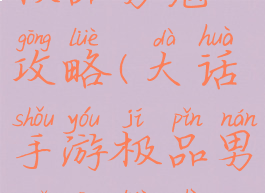 gōng lüè dà huà
攻略(大话
shǒu yóu jí pǐn nán
手游极品男